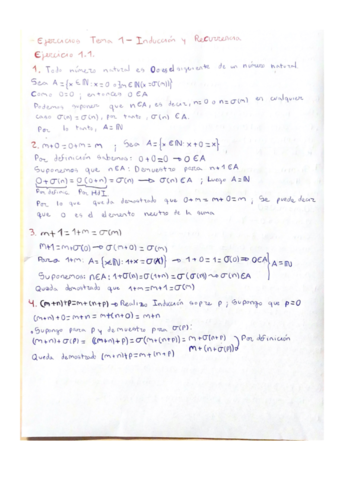 Ejercicios Tema 1 - Inducción y Recurrencia
Ejercicio 1.1.
1. Todo número natural es 0 o es el siguiente de un número natural
Sea A = {x ∈ ℕ : x = 0 o ∃n ∈ ℕ (x = σ(n))}
Como 0 = 0, entonces 0 ∈ A
Podemos suponer que n ∈ A, es decir, n = 0 o n = σ(m) en cualquier
caso σ(n) = σ(n), por tanto, σ(n) ∈ A.
Por lo tanto, A = ℕ
2. m+0 = 0+m = m ; Sea A = {x ∈ ℕ : x+0 = x}
Por definición sabemos: 0+0 = 0 → 0 ∈ A
Suponemos que n ∈ A: Demuestro para n+1 ∈ A
0+σ(n) = σ(0+n) = σ(n) → σ(n) ∈ A ; Luego A = ℕ
Por H.I
Por lo que queda demostrado que 0+m = m+0 = m ; Se puede decir
que 0 es el elemento neutro de la suma
3. m+1 = 1+m = σ(m)
m+1 = m+σ(0) → σ(m+0) = σ(m)
Para 1+m: A = {x ∈ ℕ : 1+x = σ(x)} → 1+0 = 1 = σ(0) ⇒ 0 ∈ A } A = ℕ
Suponemos: n ∈ A: 1+σ(n) = σ(1+n) = σ(σ(n)) → σ(n) ∈ A
Queda demostrado que 1+m = m+1 = σ(m)
4. (m+n)+p = m+(n+p) → Realizo Inducción sobre p ; Supongo que p = 0
(m+n)+0 = m+n = m+(n+0) = m+n
• Supongo para p y demuestro para σ(p):
(m+n)+σ(p) = σ((m+n)+p) = σ(m+(n+p)) = m+σ(n+p) } Por definición
m+(n+σ(p))
Queda demostrado (m+n)+p = m+(n+p)